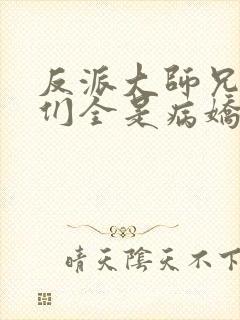 反派大師兄
们全是病嬌
晴天陰天不下